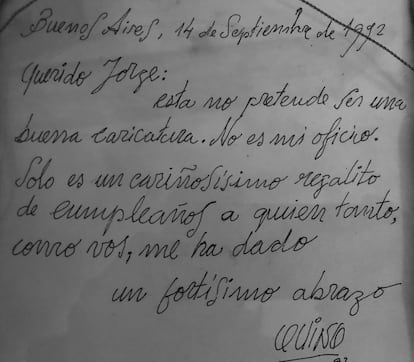 Buenos Aires, 14 de Septiembre de 1992
Querido Jorge:
esta no pretende ser una
buena caricatura. No es mi oficio.
Solo es un cariñosísimo regalito
de cumpleaños a quien tanto,
como vos, me ha dado
un fortísimo abrazo
QUINO
92